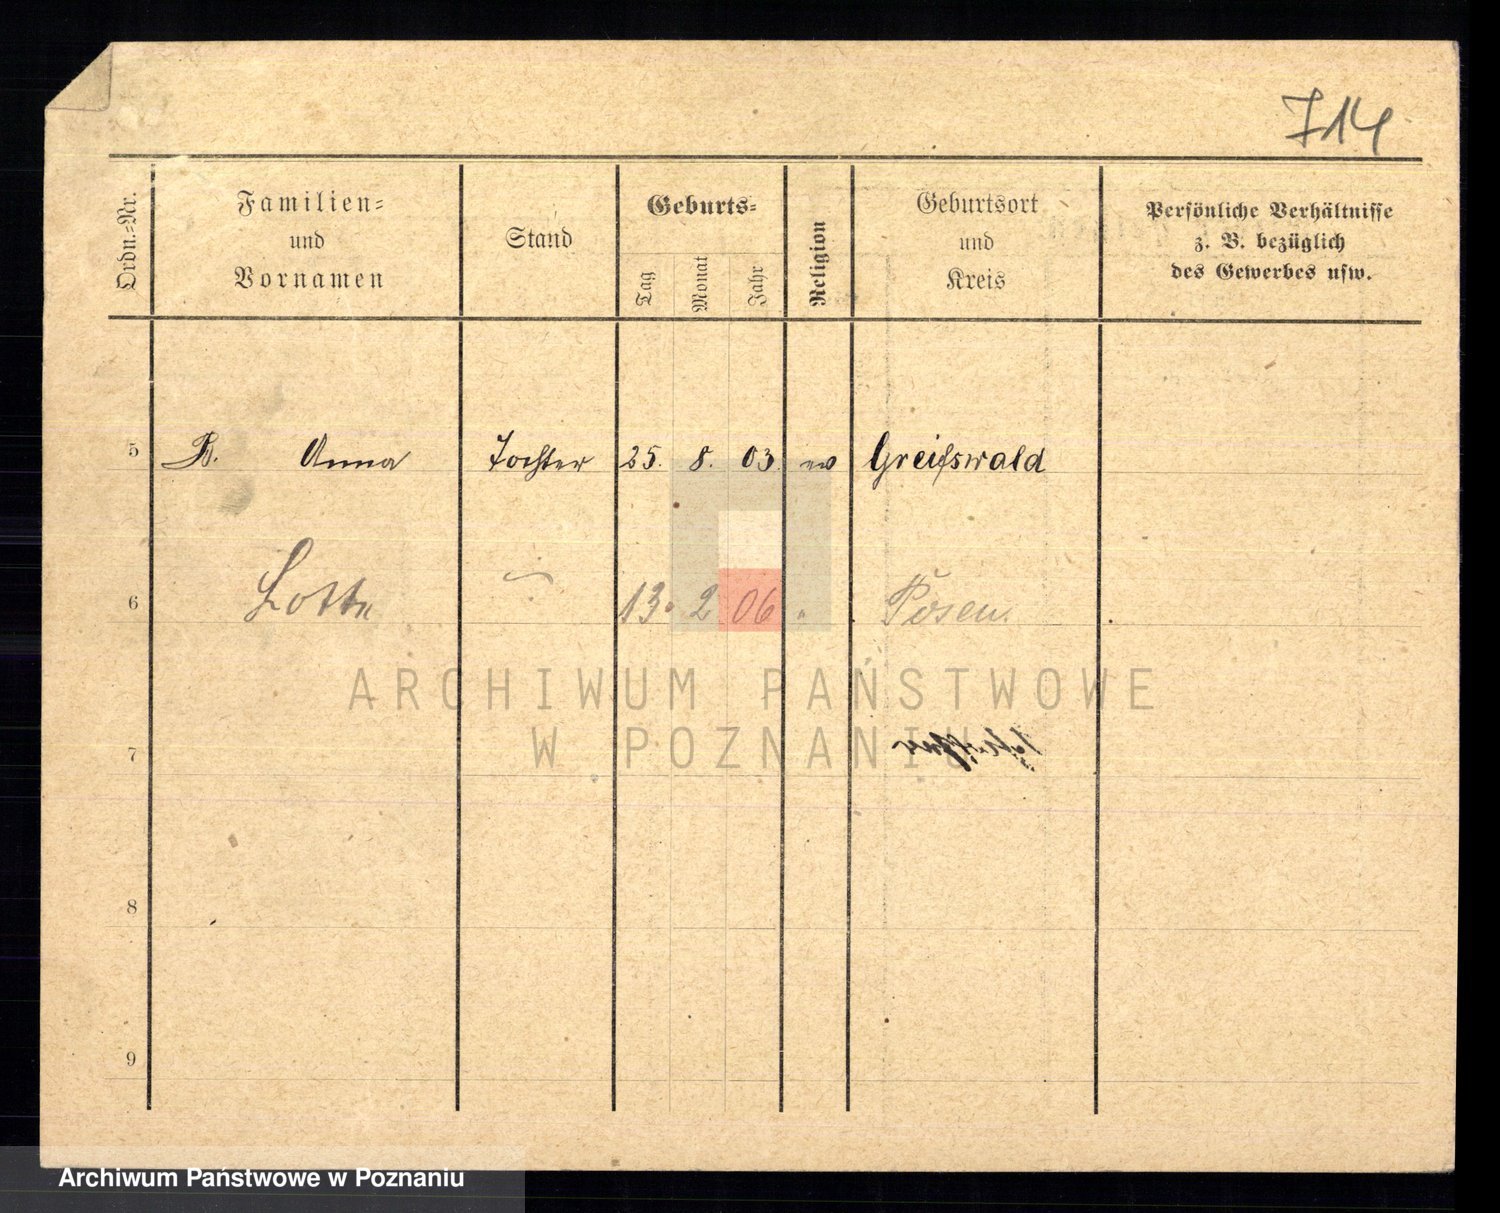 714
Ordn.-Nr.
Familien-
und
Vornamen
Stand
Geburts-
Tag
Monat
Jahr
Religion
Geburtsort
und
Kreis
Persönliche Verhältnisse
z. B. bezüglich
des Gewerbes usw.
5 B. Anna Tochter 25. 8. 03. ev Greifswald
6 Lotte 13. 2 06 " Posen.
ARCHIWUM PAŃSTWOWE
W POZNANIU
7
8
9
Archiwum Państwowe w Poznaniu